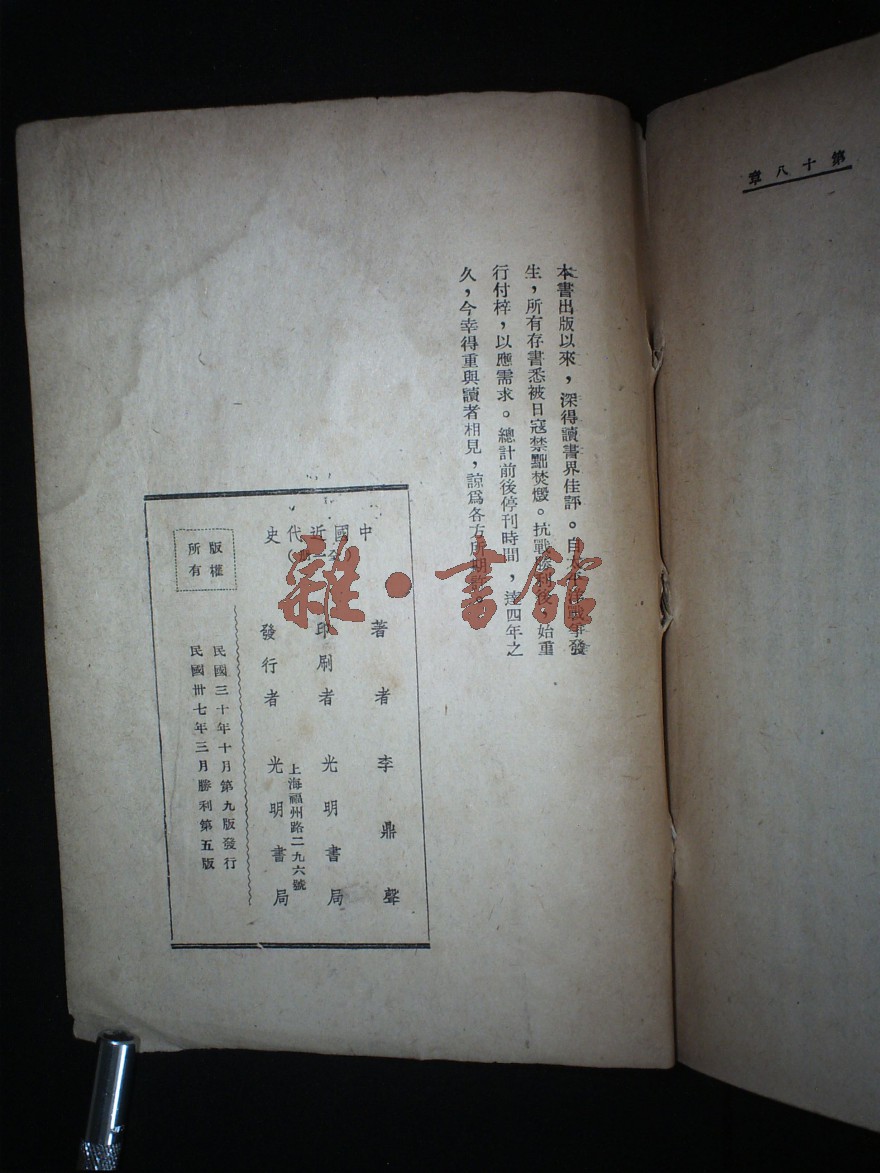 第十八章
本書出版以來，深得讀書界佳評。自太平洋戰爭發
生，所有存書悉被日寇禁黜焚燬。抗戰勝利後，始重
行付梓，以應需求。總計前後停刊時間，達四年之
久，今幸得重與讀者相見，諒爲各方所期許。
中國近代史
著者 李鼎聲
印刷者 光明書局
上海福州路二九六號
發行者 光明書局
民國三十年十月第九版發行
民國卅七年三月勝利第五版
版權
所有
雜·書館